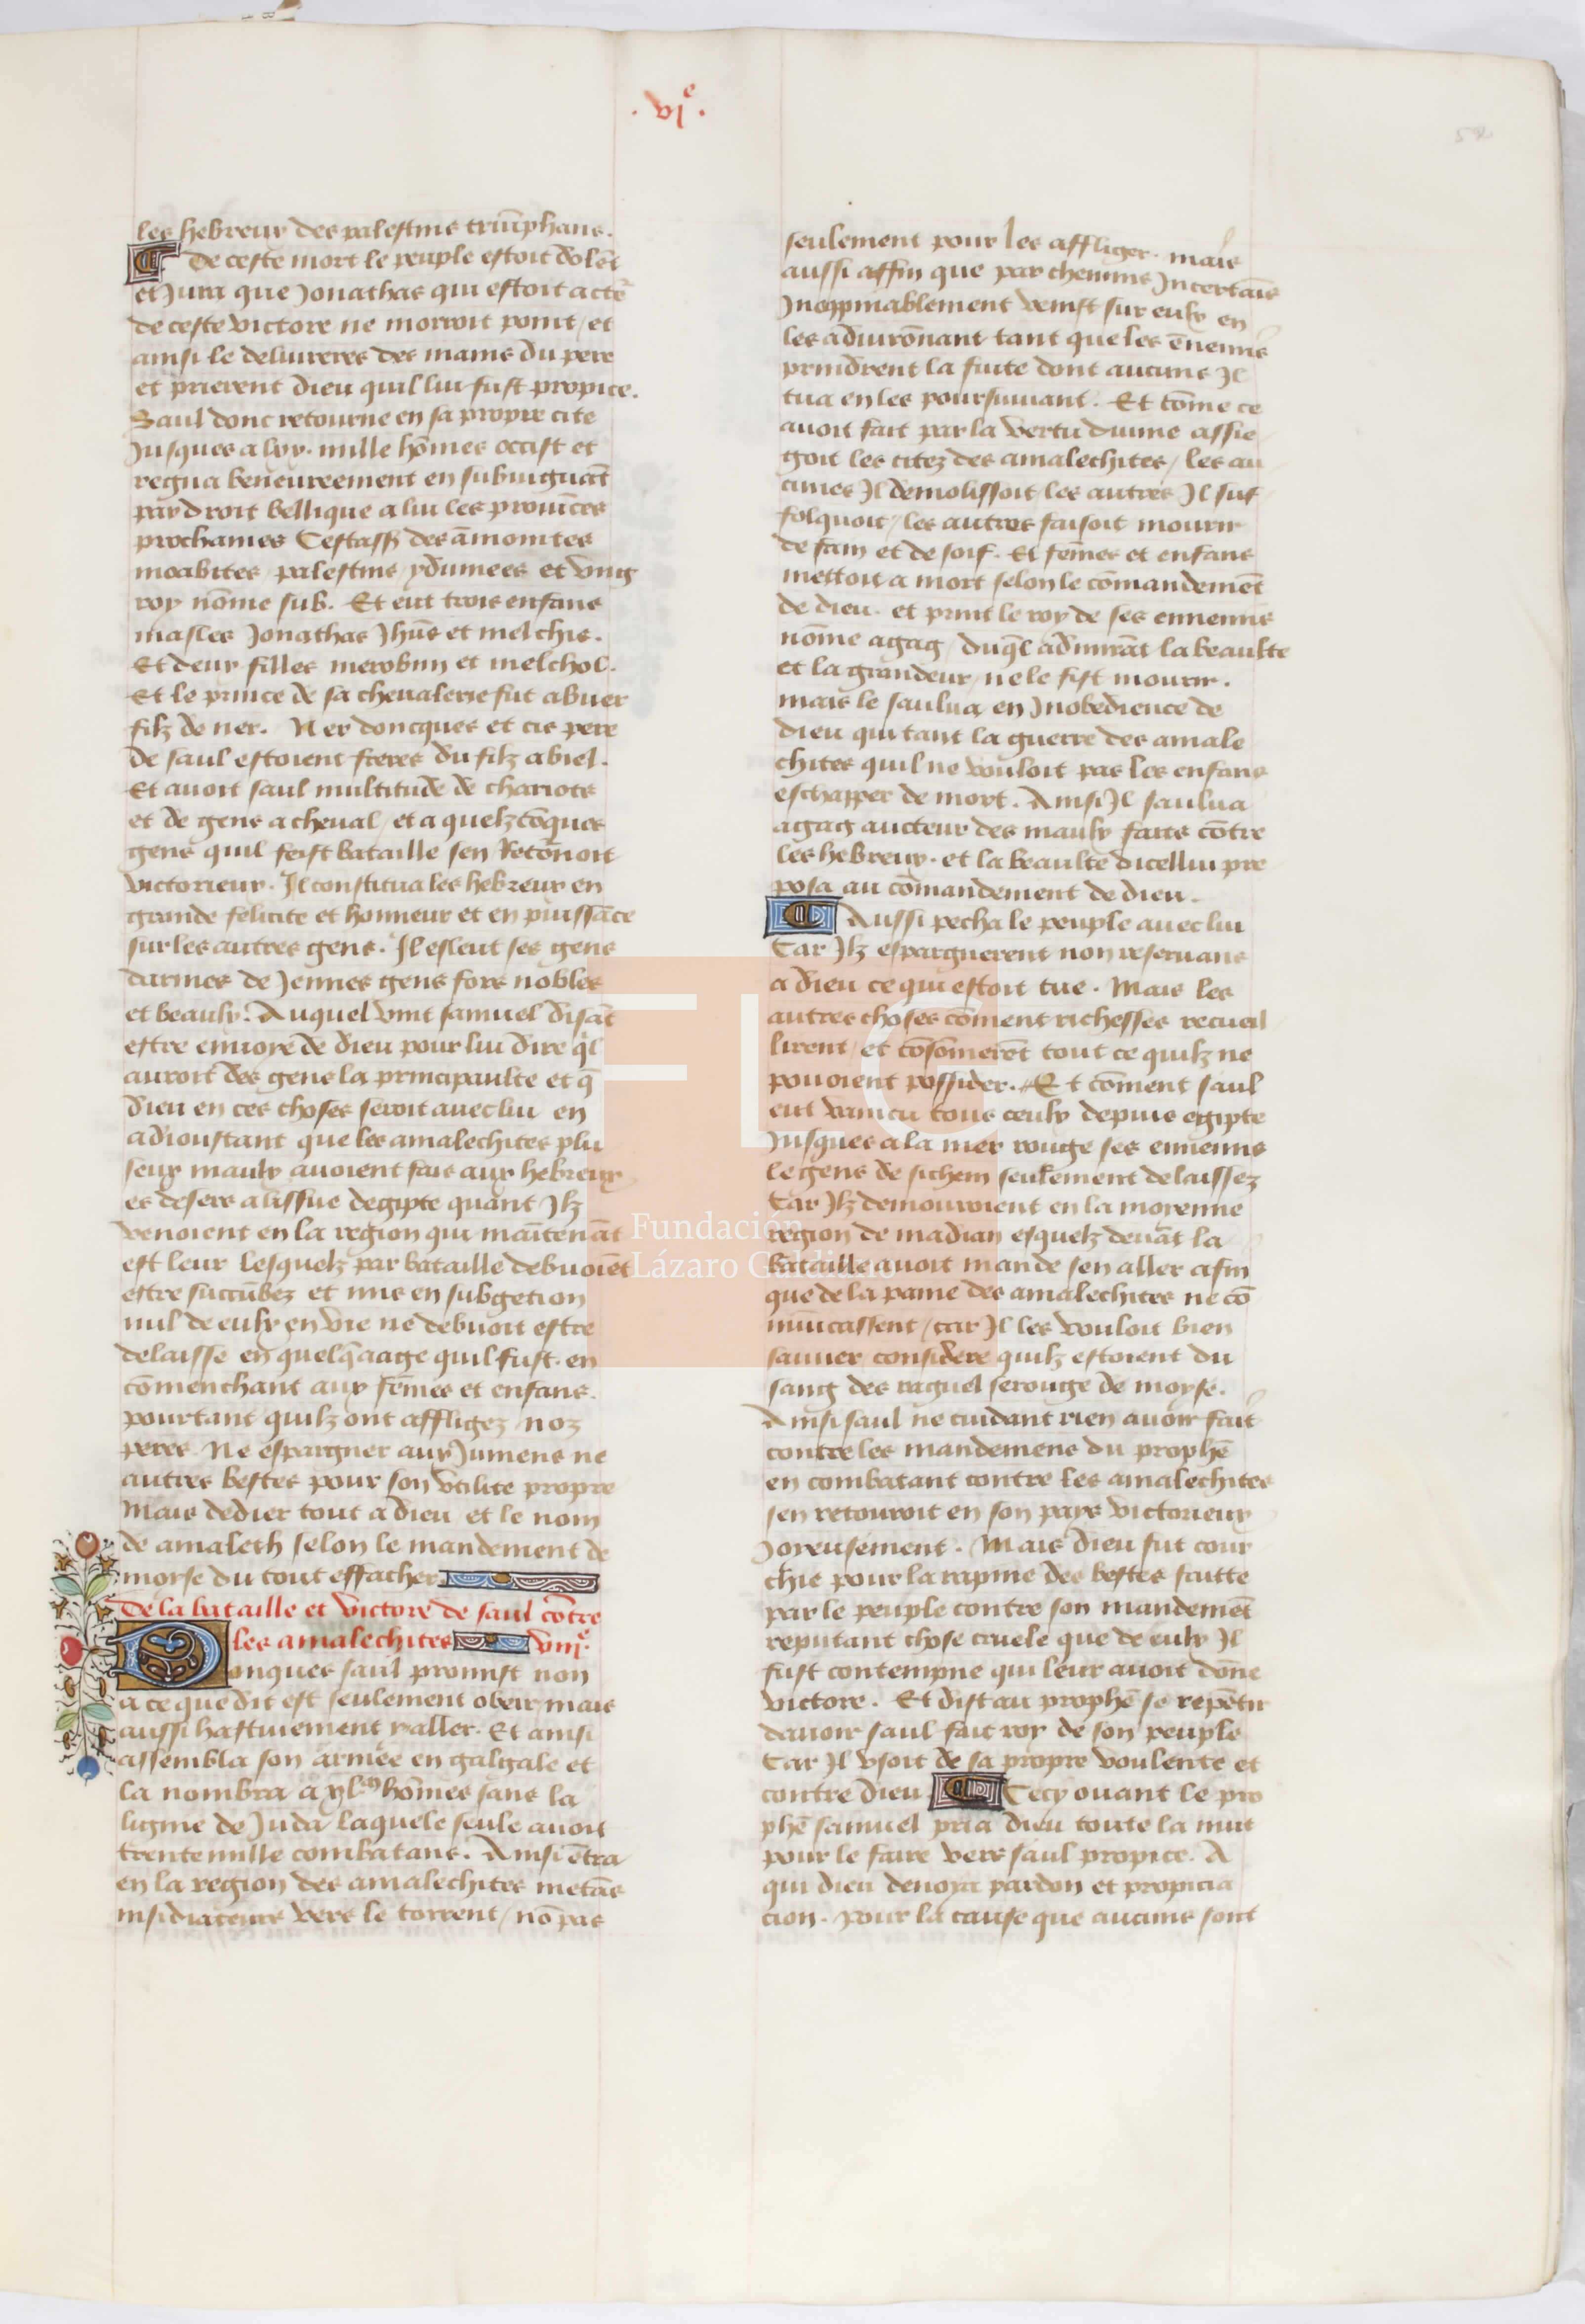 . vje .
52
les hebreux des palestins triūphans.
De ceste mort le peuple estoit dolēt
et Jura que Jonathas qui estoit acte
de ceste victore ne morroit point / et
ainsi le delivreres des mains du pere
et prierent dieu quil lui fust propice.
Saul donc retourne en sa propre cite
Jusques a lxx. mille hōmes occist et
regna beneureement en subiuguāt
par droit bellique a lui les provīces
prochaines Cestass des āmonites
moabites / palestins / ydumees et vng
roy nōme sub. Et eut trois enfans
masles Jonathas Jhūs et melchis.
Et deux filles merobin et melchol.
Et le prince de sa chevalerie fut abner
filz de ner. Ner doncques et cis pere
de saul estoient freres du filz abiel.
Et avoit saul multitude de chariots
et de gens a cheval / et a quelzcōques
gens quil feist bataille sen Retōnoit
victorieux. Il constitua les hebreux en
grande felicite et honneur et en puissāce
sur les autres gens. Il esleut ses gens
darmes de Jennes gens fors nobles
et beaulx. Auquel vint samuel disāt
estre envoie de dieu pour lui dire ql̄
auroit des gens la principaulte et q̄
dieu en ces choses seroit avec lui en
adioustant que les amalechites plu
seurs maulx avoient fais aux hebreux
es desers a lissue degipte quant Jlz
venoient en la region qui maītenāt
est leur lesquelz par bataille debvoiēt
estre succūbez et mis en subgetion
nul de eulx en vie ne debvoit estre
delaisse en quelq̄ aage quil fust. en
cōmenchant aux fēmes et enfans.
pourtant quilz ont affligez noz
peres. Ne espargner aux Jumens ne
autres bestes pour son utilite propre
Mais dedier tout a dieu et le nom
de amalech selon le mandement de
moyse du tout effacher
De la bataille et victore de saul cōtre
les amalechites viije.
Donques saul promist non
a ce que dit est seulement obeir mais
aussi hastivement y aller. Et ainsi
assembla son armee en galgale et
la nombra a xl.m hōmes sans la
ligne de Juda laquele seule avoit
trente mille combatans. Ainsi ētra
en la region des amalechites metās
insidiateurs vers le torrent / nō pas
seulement pour les affliger. mais
aussi affin que par chemins Jncertaīs
Jnoppinablement venist sur eulx en
les advirōnant tant que les ēnemis
prindrent la fuite dont aucuns Jl
tua en les poursuivant. Et cōme ce
avoit fait par la vertu divine assie
goit les citez des amalechites / les au
cunes Jl demolissoit les autres Jl suf
folquoit / les autres faisoit mourir
de fain et de soif. Et fēmes et enfans
mettoit a mort selon le cōmandemēt
de dieu. et print le roy de ses ennemis
nōme agag / duq̄l admirāt la beaulte
et la grandeur / ne le fist mourir.
mais le saulva en Jnobedience de
dieu qui tant la guerre des amale
chites quil ne vouloit pas les enfans
eschapper de mort. Ainsi Jl saulva
agag aucteur des maulx fais cōtre
les hebreux. et la beaulte dicellui pre
posa au cōmandement de dieu.
Aussi pecha le peuple avec lui
Car Jlz espargnerent non reservans
a dieu ce qui estoit tue. Mais les
autres choses cōment richesses recueil
lirent / et cōsōmerēt tout ce quilz ne
pouoient possider. Et cōment saul
eut vaincu tous ceulx depuis egipte
Jusques a la mer rouge ses ennemis
le gens de sichem seulement delaissez
Car Jlz demouroient en la moyenne
region de madian esquelz devāt la
bataille avoit mande sen aller afin
que de la paine des amalechites ne cō
mūicassent / car Jl les vouloit bien
sauver considere quilz estoient du
sang des raguel serouge de moyse.
Ainsi saul ne cuidant rien avoir fait
contre les mandemens du prophē
en combatant contre les amalechites
sen retouroit en son pays victorieux
Joyeusement. Mais dieu fut cour
chie pour la rapine des bestes faitte
par le peuple contre son mandemēt
reputant chose cruele que de eulx Jl
fust contempne qui leur avoit dōne
victore. Et dist au prophē se repētir
davoir saul fait roy de son peuple
Car Jl usoit de sa propre voulente et
contre dieu Cecy ouant le pro
phē samuel pria dieu toute la nuit
pour le faire vers saul propice. A
qui dieu denoya pardon et propicia
cion. pour la cause que aucuns sont
Fundación
Lázaro Galdiano
FLG